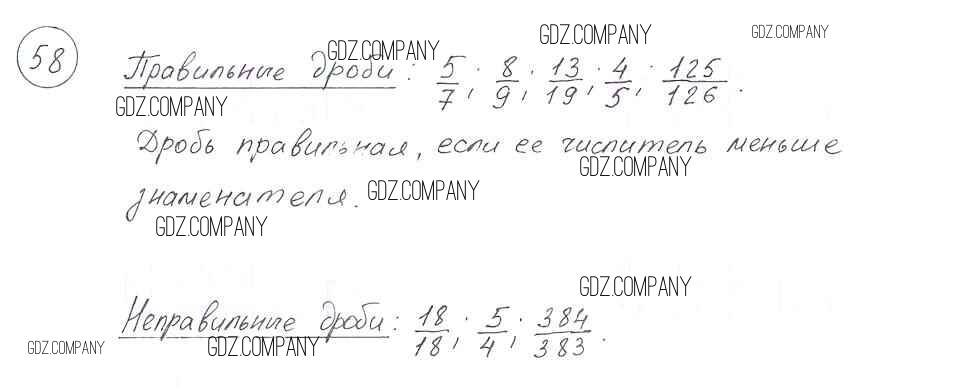 58
GDZ.COMPANY GDZ.COMPANY GDZ.COMPANY
Правильные дроби: 5/7; 8/9; 13/19; 4/5; 125/126.
GDZ.COMPANY
Дробь правильная, если ее числитель меньше
GDZ.COMPANY
знаменателя. GDZ.COMPANY
GDZ.COMPANY
GDZ.COMPANY
Неправильные дроби: 18/18; 5/4; 384/383.
GDZ.COMPANY GDZ.COMPANY